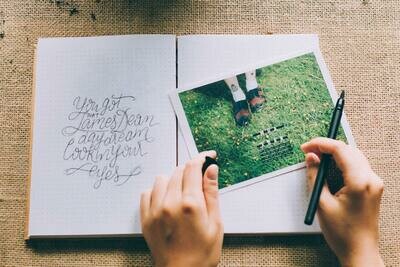 You got
that
James Dean
daydream
look in your
eyes